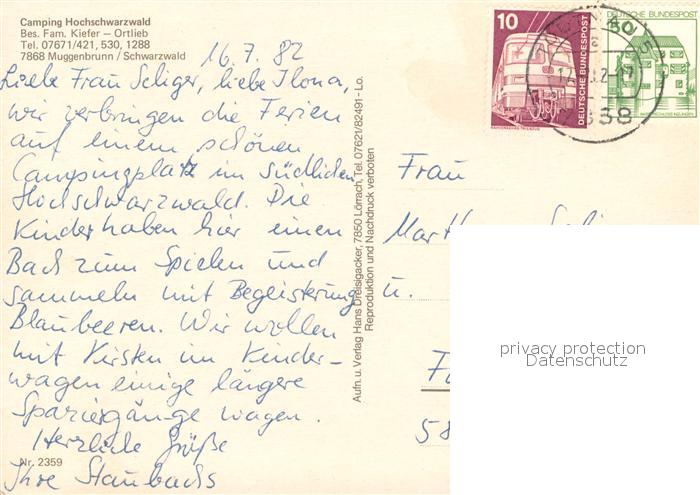 Camping Hochschwarzwald
Bes. Fam. Kiefer – Ortlieb
Tel. 07671/421, 530, 1288
7868 Muggenbrunn / Schwarzwald
16.7.82
Liebe Frau Seliger, liebe Ilona,
wir verbringen die Ferien
auf einem schönen
Campingplatz im südlichen
Hochschwarzwald. Die
Kinder haben hier einen
Bach zum Spielen und
sammeln mit Begeisterung
Blaubeeren. Wir wollen
mit Kirsten im Kinder-
wagen einige längere
Spaziergänge wagen.
Herzliche Grüße
Ihre Staubachs
Nr. 2359
Aufn. u. Verlag Hans Dreisigacker, 7850 Lörrach, Tel. 07621/82491 - Lo.
Reproduktion und Nachdruck verboten
10
DEUTSCHE BUNDESPOST
DEUTSCHE BUNDESPOST
50
Frau
u.
58
privacy protection
Datenschutz